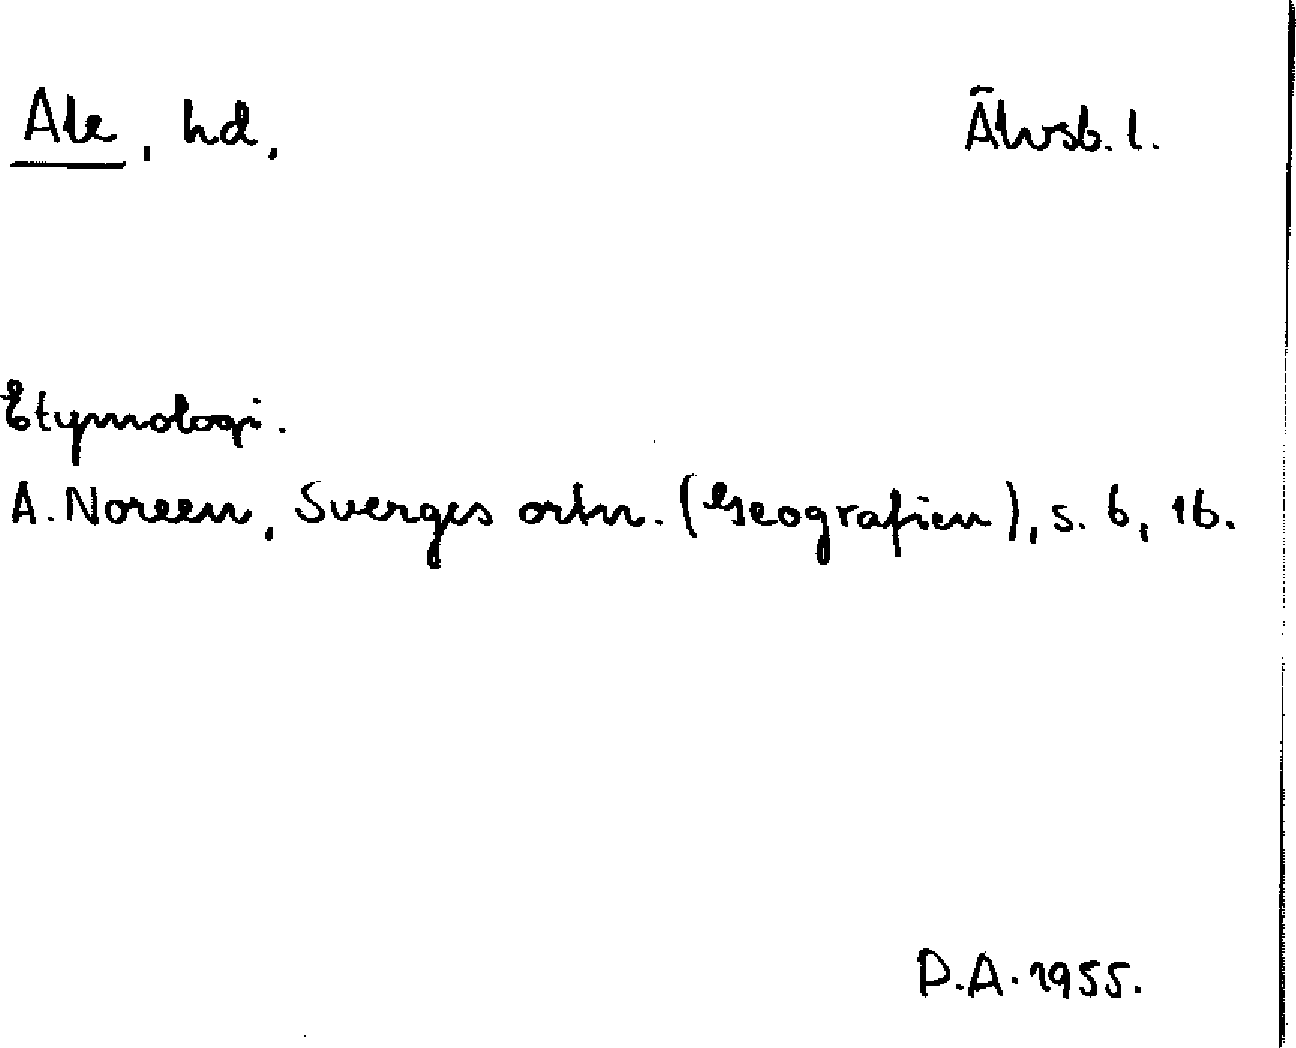 Ale, hd, Älvsb. l.
Etymologi.
A. Noreen, Sverges ortn. (Geografien), s. 6, 16.
D.A. 1955.